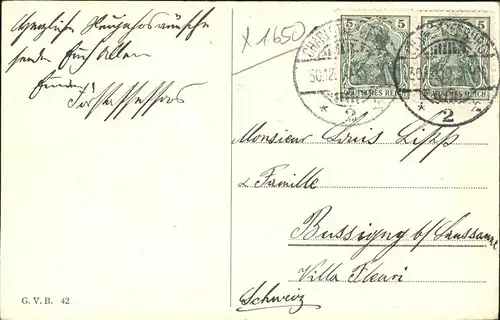 Herzliche Neujahrswünsche
senden Euch Allen
x 1650
5 5
5
DEUTSCHES REICH
DEUTSCHES REICH
30.12
* 2
* 2
Monsieur Louis Lipp
& Famille
Bussigny b/ Lausanne
Villa Fleuri
Schweiz
G. V. B. 42